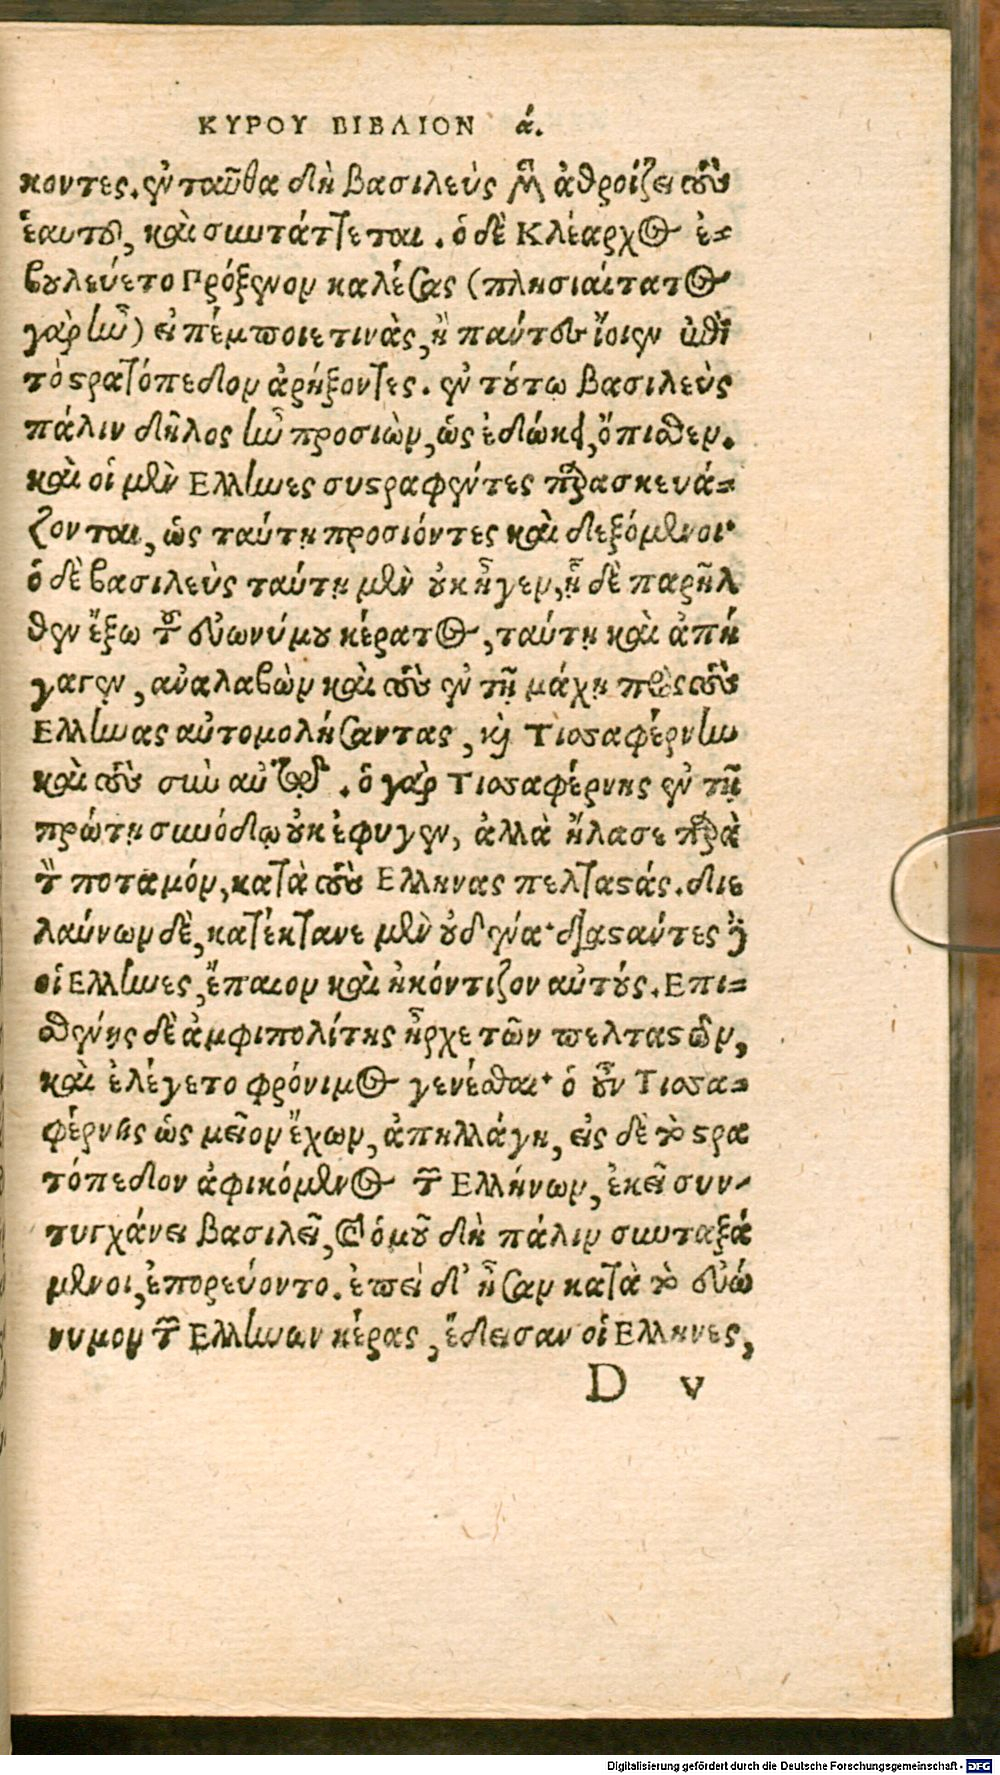 ΚΥΡΟΥ ΒΙΒΛΙΟΝ ά.
κοντες. ἐνταῦθα δὴ βασιλεὺς μὲν ἀθροίζει τοὺς
ἑαυτοῦ, καὶ συντάττεται. ὁ δὲ Κλέαρχος ἐ-
βουλεύετο Πρόξενον καλέσας (πλησιαίτατος
γὰρ ἦν) εἰ πέμποιε τινὰς, ἢ πάντες ἴοιεν ἐπὶ
τὸ στρατόπεδον ἀρήξοντες. ἐν τούτω βασιλεὺς
πάλιν δῆλος ἦν προσιὼν, ὡς ἐδόκει, ὄπισθεν.
καὶ οἱ μὲν Ελληνες συστραφέντες παρασκευά-
ζονται, ὡς ταύτῃ προσιόντες καὶ δεξόμενοι·
ὁ δὲ βασιλεὺς ταύτῃ μὲν οὐκ ἦγεν, ᾗ δὲ παρῆλ
θεν ἔξω τοῦ εὐωνύμου κέρατος, ταύτῃ καὶ ἀπή
γαγεν, ἀναλαβὼν καὶ τοὺς ἐν τῇ μάχῃ πρὸς τοὺς
Ελληνας αὐτομολήσαντας, καὶ Τισσαφέρνην
καὶ τοὺς σὺν αὐτῷ. ὁ γὰρ Τισσαφέρνης ἐν τῇ
πρώτῃ συνόδῳ οὐκ ἔφυγεν, ἀλλὰ ἤλασε παρὰ
τὸν ποταμόν, κατὰ τοὺς Ελληνας πελταστάς. διε
λαύνων δὲ, κατέκτανε μὲν οὐδένα· διαστάντες δὲ
οἱ Ελληνες, ἔπαιον καὶ ἠκόντιζον αὐτούς. Επι-
σθένης δὲ ἀμφιπολίτης ἦρχε τῶν πελταστῶν,
καὶ ἐλέγετο φρόνιμος γενέσθαι· ὁ οὖν Τισσα-
φέρνης ὡς μεῖον ἔχων, ἀπηλλάγη, εἰς δὲ τὸ στρα
τόπεδον ἀφικόμενος τῶν Ελλήνων, ἐκεῖ συν-
τυγχάνει βασιλεῖ, καὶ ὁμοῦ δὴ πάλιν συνταξά
μενοι, ἐπορεύοντο. ἐπεὶ δ' ἦσαν κατὰ τὸ εὐώ
νυμον τῶν Ελλήνων κέρας, ἔδεισαν οἱ Ελληνες,
D v
Digitalisierung gefördert durch die Deutsche Forschungsgemeinschaft - DFG